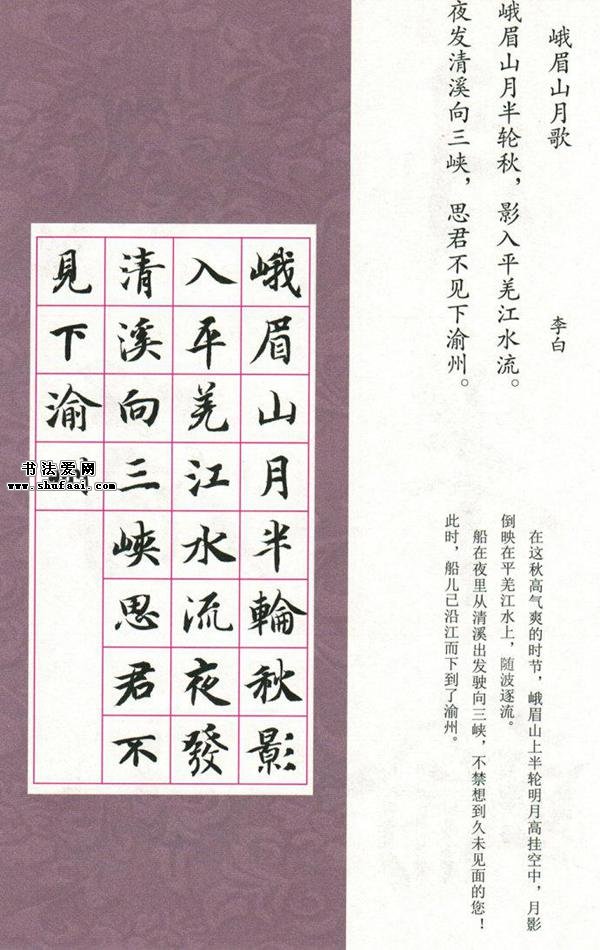 峨眉山月歌
李白
峨眉山月半轮秋，影入平羌江水流。
夜发清溪向三峡，思君不见下渝州。
在这秋高气爽的时节，峨眉山上半轮明月高挂空中，月影
倒映在平羌江水上，随波逐流。
船在夜里从清溪出发驶向三峡，不禁想到久未见面的您！
此时，船儿已沿江而下到了渝州。
峨眉山月半輪秋影
入平羌江水流夜發
清溪向三峽思君不
見下渝州
书法爱网
www.shufaai.com